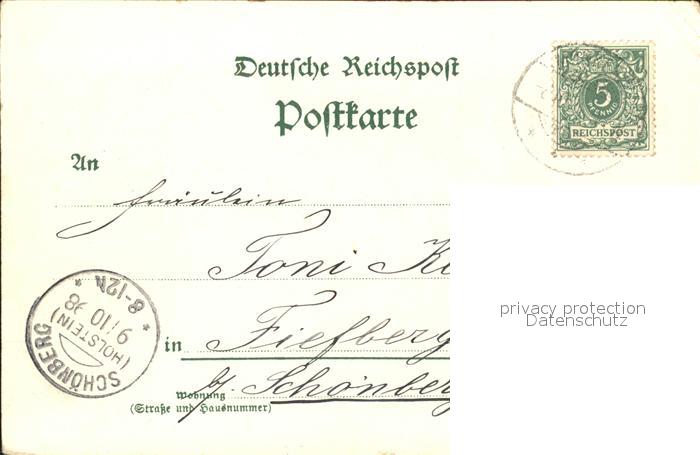 Deutsche Reichspost
Postkarte
5
PFENNIG
REICHSPOST
An
Fräulein
Toni
in Fiefberg
b/ Schönberg
Wohnung
(Straße und Hausnummer)
SCHÖNBERG
(HOLSTEIN)
9/10 98
8-12N
privacy protection
Datenschutz